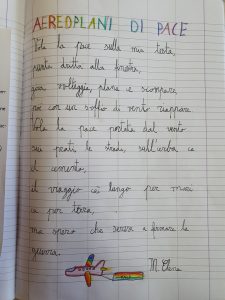 AEREOPLANI DI PACE
Vola la pace sulla mia testa,
punta dritta alla finestra,
gira volteggia, plana e scompare
poi con un soffio di vento riappare.
Vola la pace portata dal vento
sui prati le strade, sull'erba e
il cemento,
il viaggio è lungo per mari
e per terra,
ma spero che serva a fermare la
guerra.
M. Elena